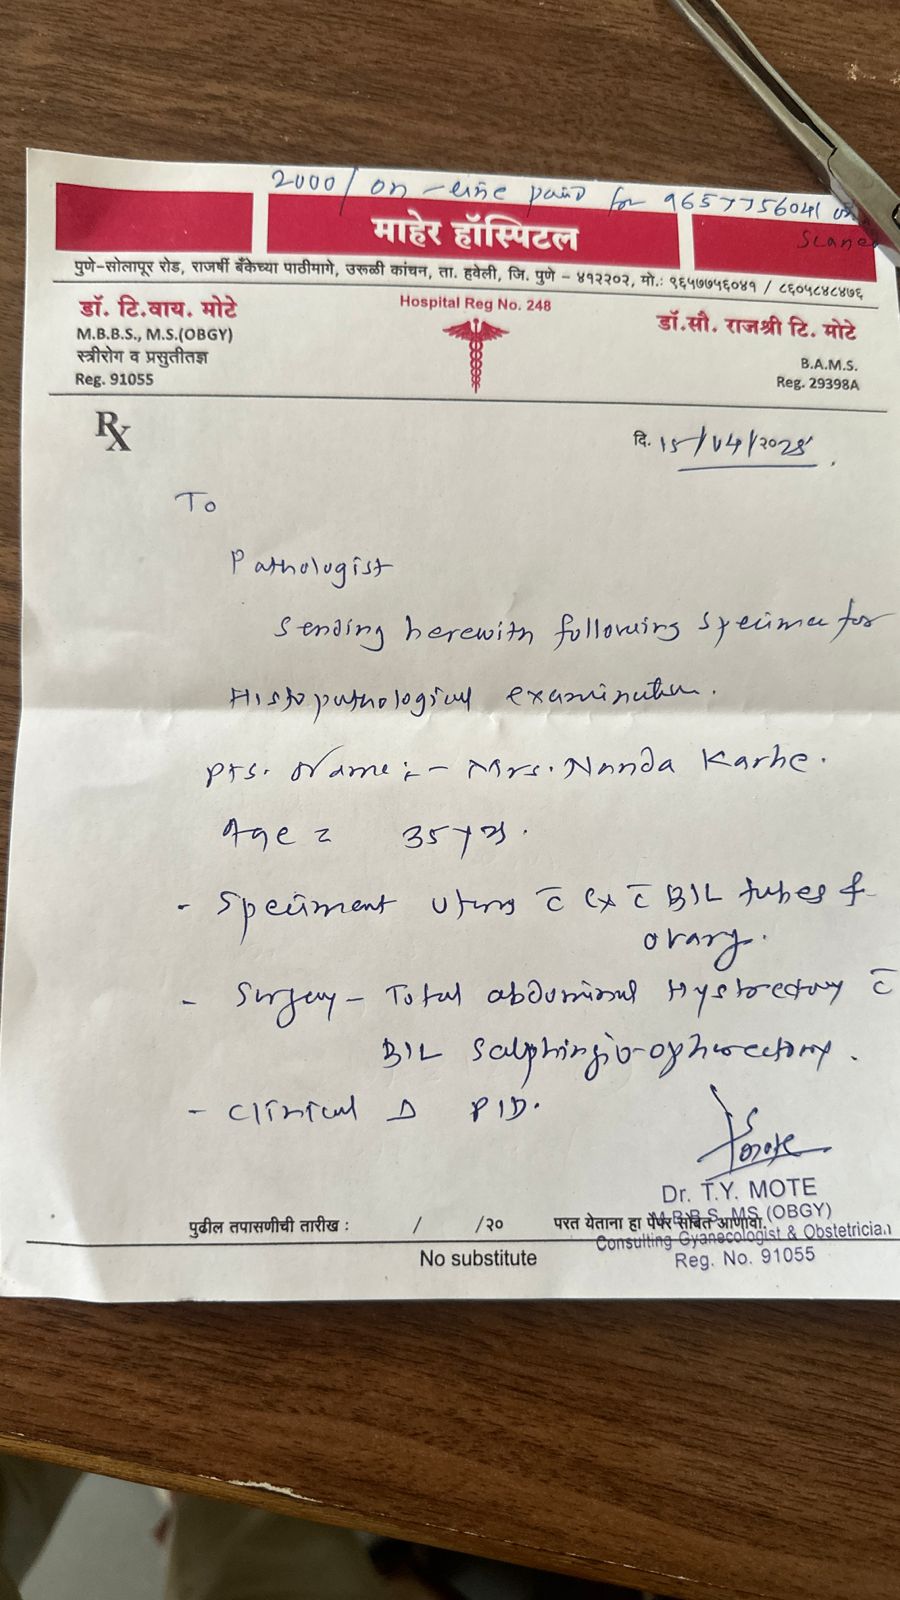 2000/ on-line paid for 9657756041
Scaned
माहेर हॉस्पिटल
पुणे-सोलापूर रोड, राजर्षी बँकेच्या पाठीमागे, उरूळी कांचन, ता. हवेली, जि. पुणे - ४१२२०२, मो.: ९६५७७५६०४१ / ८६०५८४८४७६
Hospital Reg No. 248
डॉ. टि.वाय. मोटे
M.B.B.S., M.S.(OBGY)
स्त्रीरोग व प्रसुतीतज्ञ
Reg. 91055
डॉ.सौ. राजश्री टि. मोटे
B.A.M.S.
Reg. 29398A
Rx
दि. 15/04/२०२५
To
Pathologist
Sending herewith following specimen for
Histopathological examination.
Pts. Name :- Mrs. Nanda Karhe.
Age = 35 yrs.
- Speciment Uterus c̄ Cx c̄ B/L tubes &
ovary.
- Surgery - Total abdominal Hystrectomy c̄
B/L Salphingio-ophorectomy.
- Clinical Δ PID.
Dr. T.Y. MOTE
M.B.B.S. MS (OBGY)
Consulting Gyanecologist & Obstetrician
Reg. No. 91055
पुढील तपासणीची तारीख : / /२० परत येताना हा पेपर सोबत आणावा.
No substitute